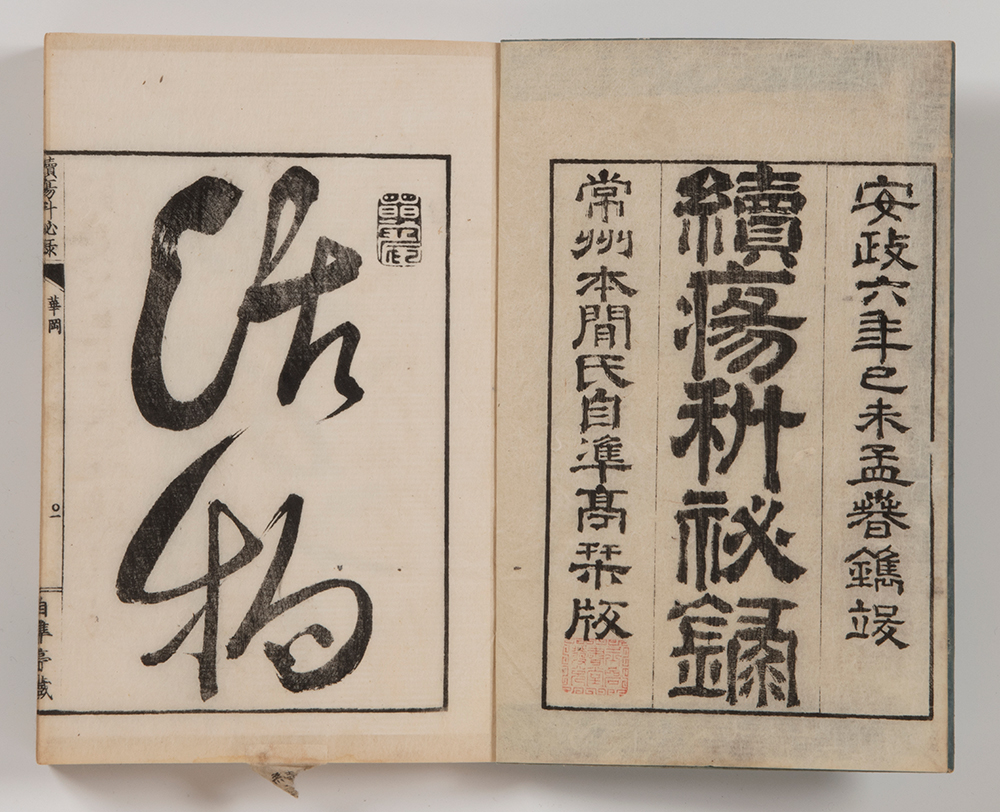 安政六年己未孟春鐫竣
續瘍科祕錄
常州本間氏自準亭栞版
活物
續瘍科祕錄
華岡
〇一
自準亭藏